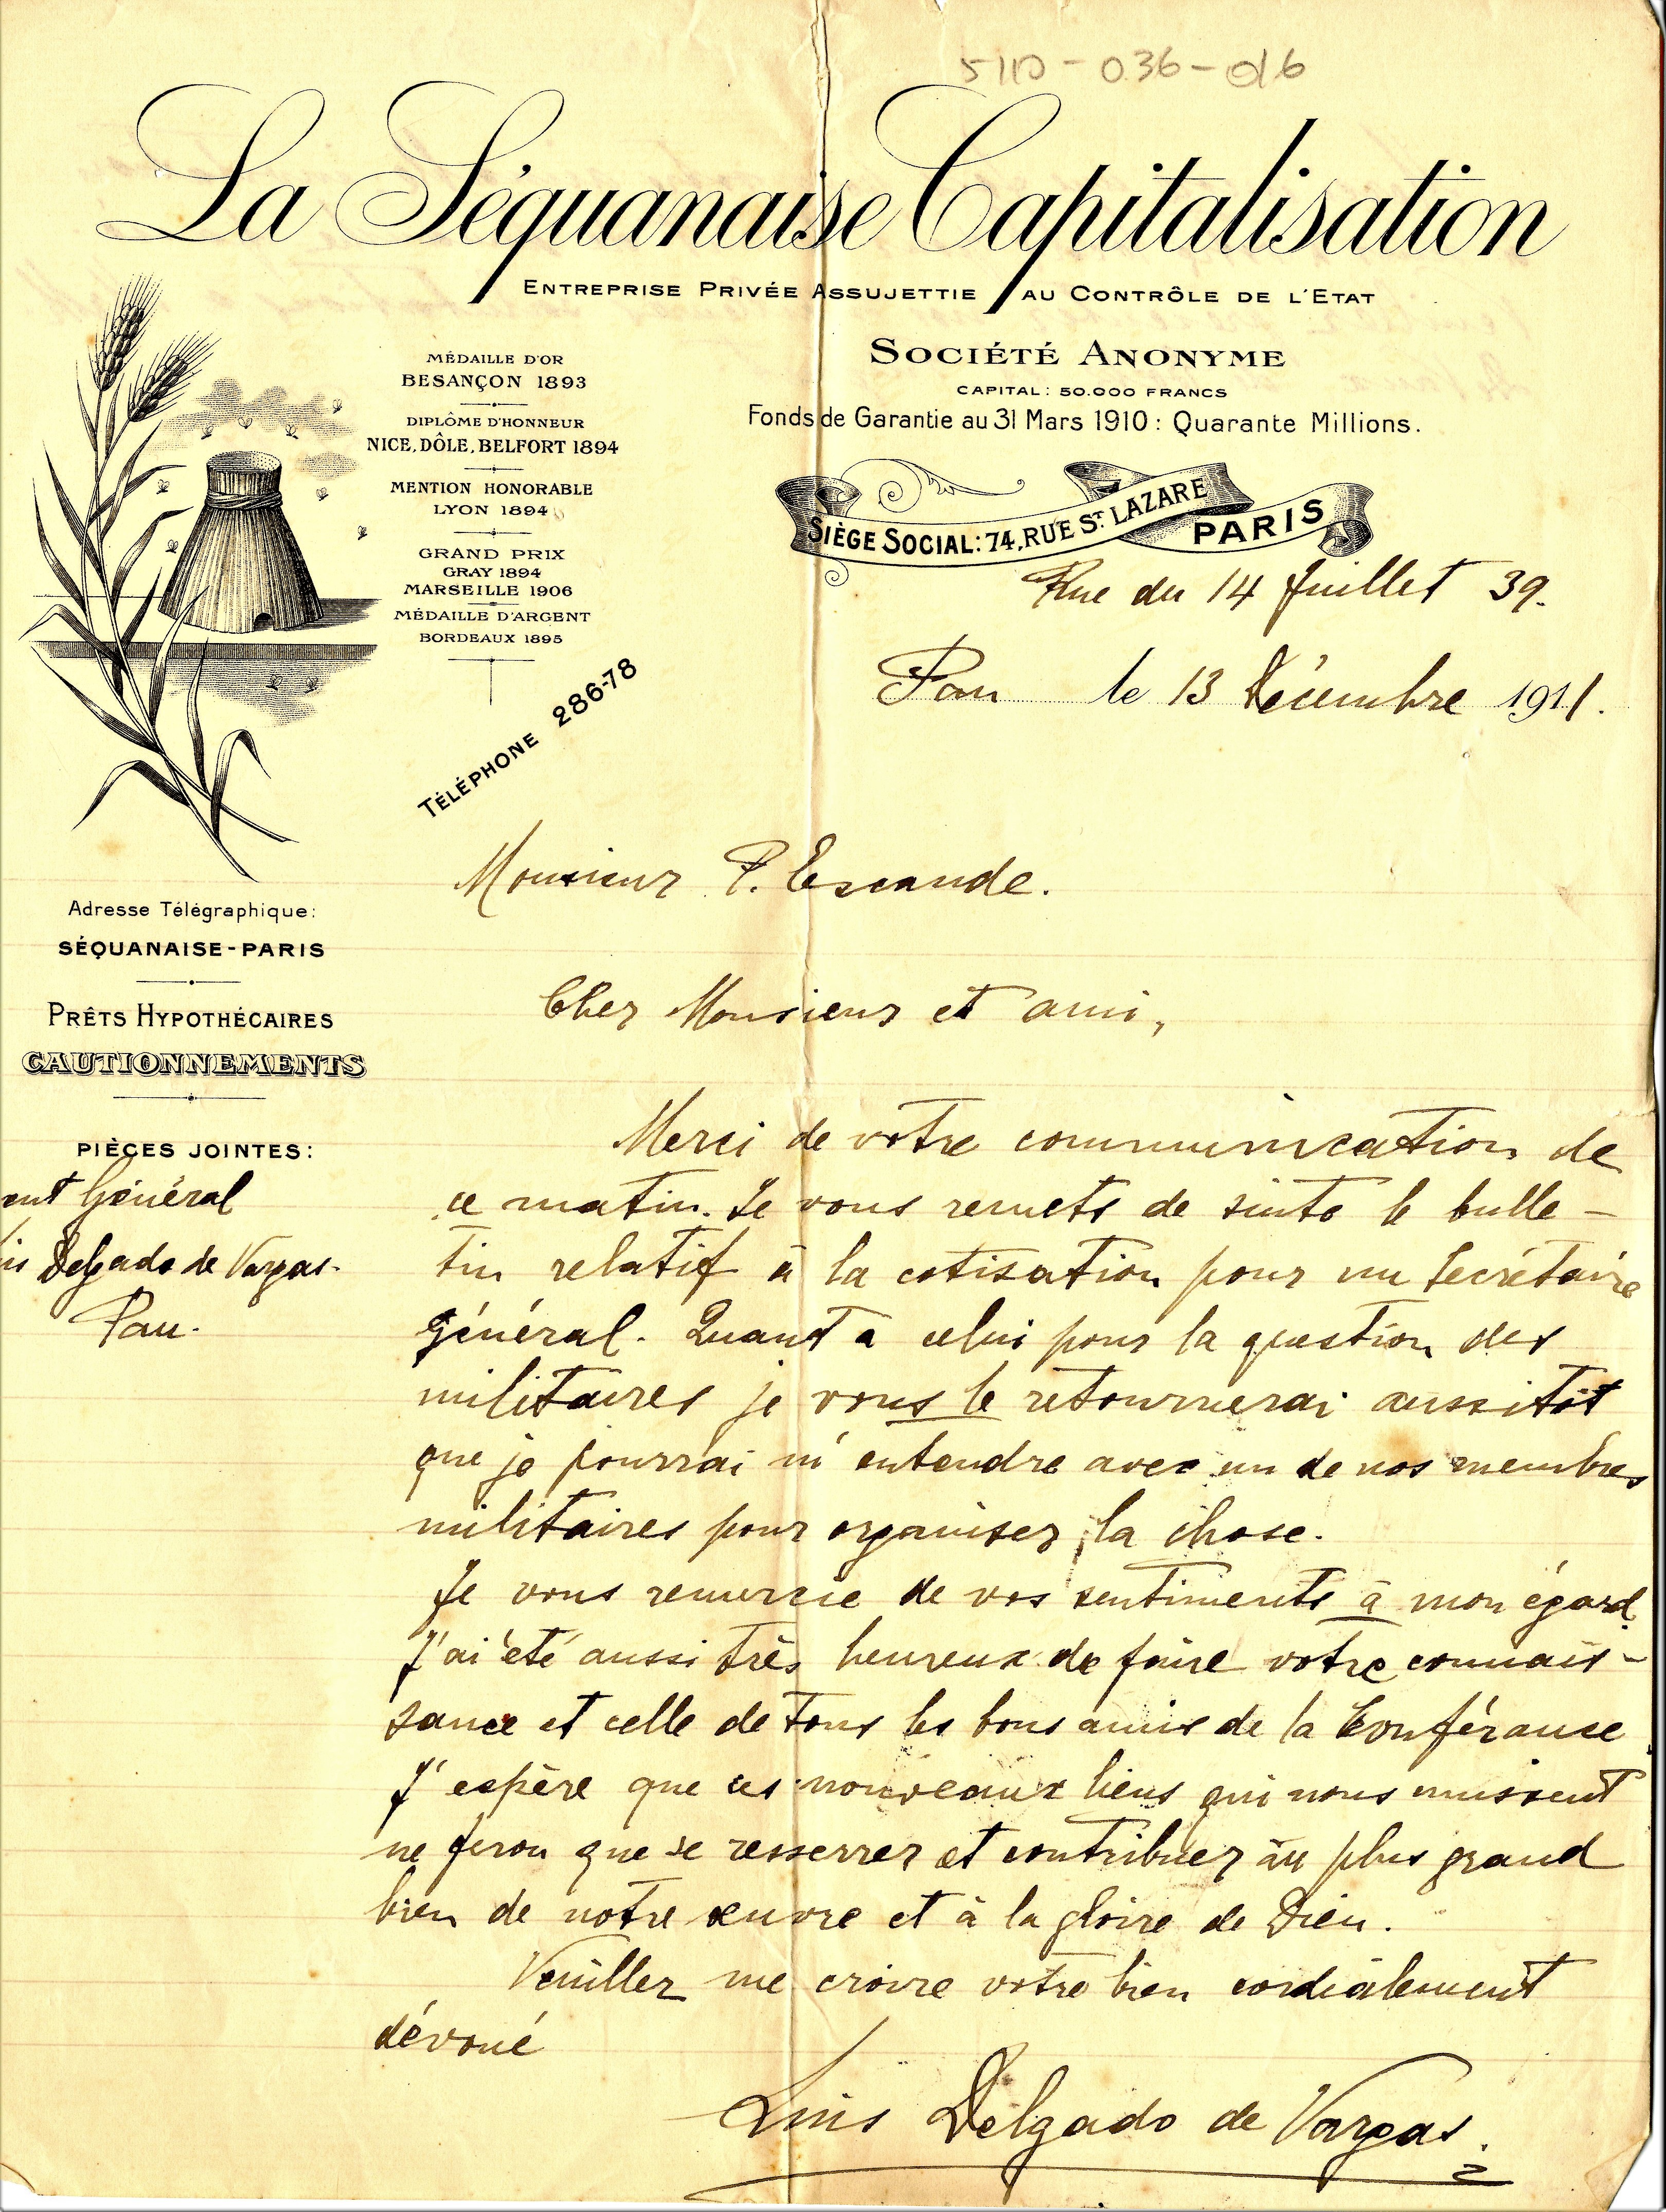 5110-036-016
La Séquanaise Capitalisation
ENTREPRISE PRIVÉE ASSUJETTIE AU CONTRÔLE DE L'ETAT
SOCIÉTÉ ANONYME
CAPITAL: 50.000 FRANCS
Fonds de Garantie au 31 Mars 1910 : Quarante Millions.
SIÈGE SOCIAL: 74, RUE ST LAZARE PARIS
MÉDAILLE D'OR
BESANÇON 1893
DIPLÔME D'HONNEUR
NICE, DÔLE, BELFORT 1894
MENTION HONORABLE
LYON 1894
GRAND PRIX
GRAY 1894
MARSEILLE 1906
MÉDAILLE D'ARGENT
BORDEAUX 1895
TÉLÉPHONE 286-78
Rue du 14 Juillet 39.
Pau le 13 Décembre 1911.
Adresse Télégraphique:
SÉQUANAISE-PARIS
PRÊTS HYPOTHÉCAIRES
CAUTIONNEMENTS
PIÈCES JOINTES:
ent Général
is Delgado de Vargas.
Pau.
Monsieur P. Escande.
Cher Monsieur et ami,
Merci de votre communication de
ce matin. Je vous remets de suite le bulle-
tin relatif à la cotisation pour un Secrétaire
général. Quant à celui pour la question des
militaires je vous le retournerai aussitôt
que je pourrai m'entendre avec un de nos membres
militaires pour organiser la chose.
Je vous remercie de vos sentiments à mon égard.
J'ai été aussi très heureux de faire votre connais-
sance et celle de tous les bons amis de la Conférance
J'espère que ces nouveaux liens qui nous unissent
ne feron que se resserrer et contribuer au plus grand
bien de notre œuvre et à la gloire de Dieu.
Veuillez me croire votre bien cordialement
dévoué
Luis Delgado de Vargas.